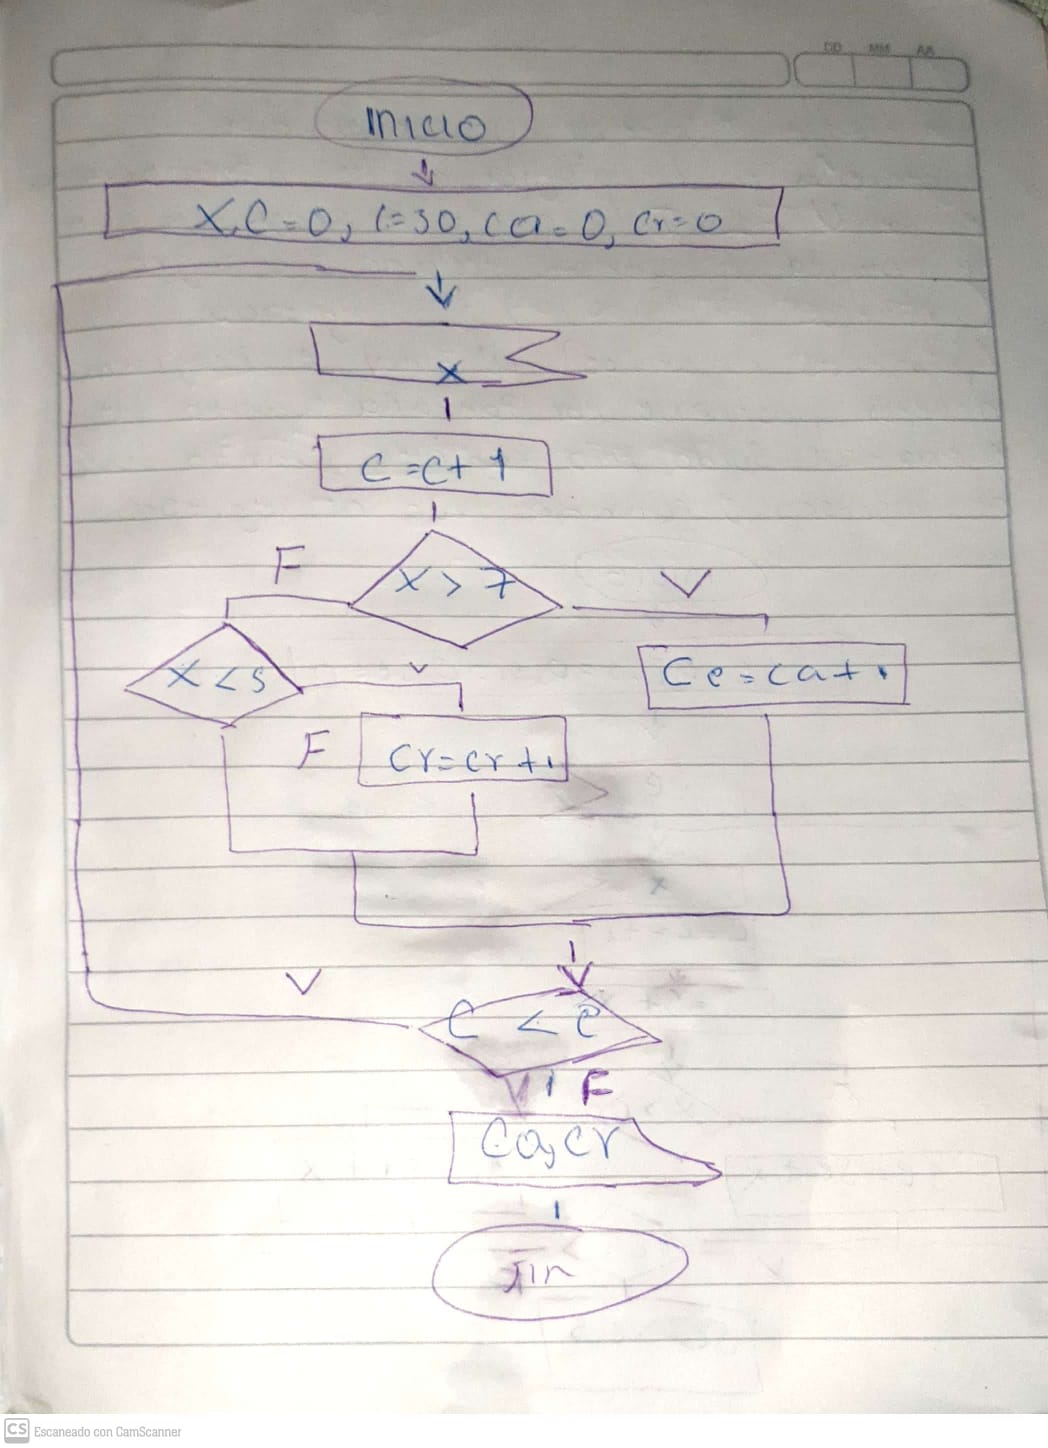 DD MM AA
Inicio
X, C=0, l=30, ca=0, Cr=0
x
C=C+1
F
X > 7
V
X<5
v
Ce=ca+1
F
Cr=cr+1
V
C < e
F
Ca, cr
Fin
CS Escaneado con CamScanner